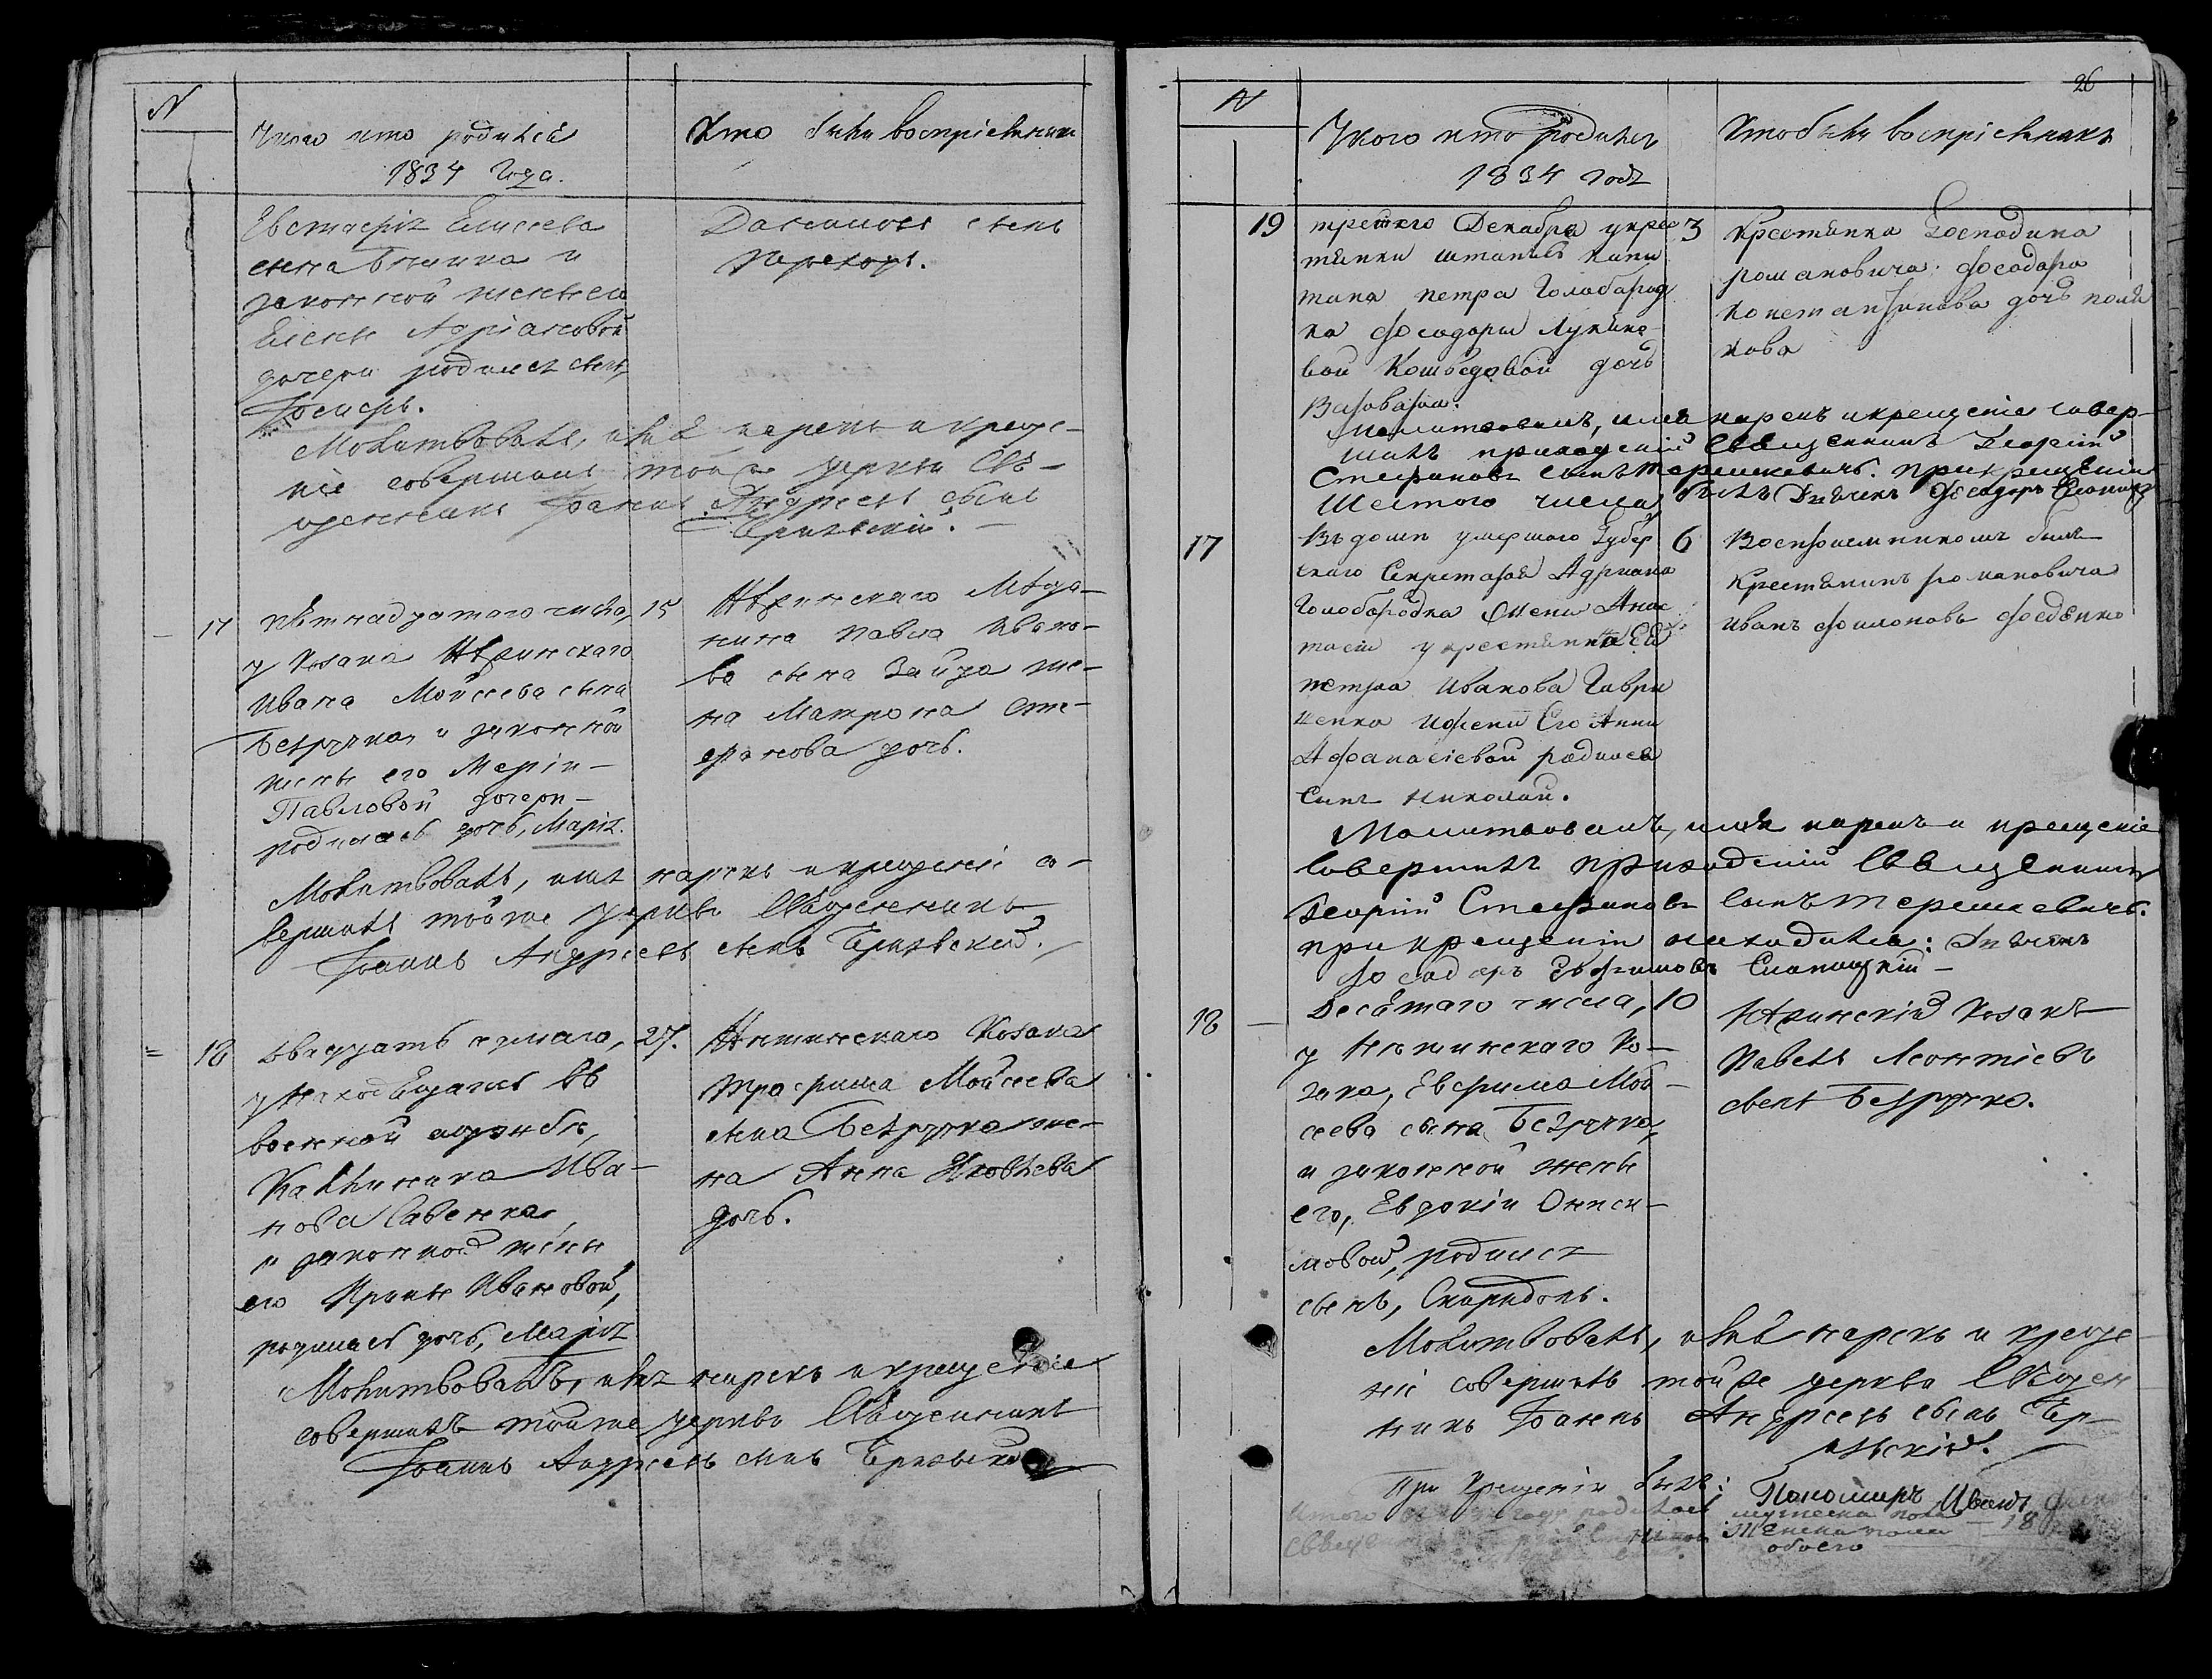 N
У кого кто родился
1834 Года.
Кто были восприемники
Евстафія Елисеева
сына и
законной жены его
Елены Адріановой
дочери родился сынъ,
Іосифъ.
Молитвовалъ, имя нарекъ и креще-
ніе совершилъ той же церкви Свя-
щенникъ Іоаннъ Андреевъ сынъ
сынъ
17
пятнадцатого числа, 15
у Козака Нѣжинскаго
Ивана Мойсеева сына
Безручка, и законной
жены его Маріи
Павловой дочери
родилась дочь, Марія.
Нѣжинскаго Мѣща-
нина Павла Ивано-
ва сына Зайца же-
на Матрона Сте-
фанова дочь.
Молитвовалъ, имя нарекъ и крещеніе со-
вершилъ той же церкви Священникъ
Іоаннъ Андреевъ сынъ
18
двадцать седмаго, 27.
у находящагося въ
военной службѣ,
Каллиника Ива-
нова Савенка,
и законной жены
его Ирины Ивановой,
родилась дочь, Марія
Нѣжинскаго Козака
Трофима Мойсеева
сына Безручка же-
на Анна Яковлева
дочь.
Молитвовалъ, имя нарекъ и крещеніе
совершилъ той же церкви Священникъ
Іоаннъ Андреевъ сынъ
26
N
У кого кто родился
1834 годъ
Кто были воспріемники
19
третего Декабря у крес 3
тянки штапсъ капи
тана Петра Голобород
ка Феодоры Лукяно-
вой дочь
Варвара.
Крестянка Господина
романовича Феодора
константинова дочь
Молитвовалъ, имя нарекъ и крещеніе совер-
шилъ приходскій Священникъ Георгій
Стефановъ сынъ Терешкевичъ. при крещеніи
Шестого числа былъ Дьячекъ Феодоръ
17
Въ доми умершого Губер 6
скаго Секретаря Адриана
Голобородка жени Анас
тасіи у крестянина Ея
петра Иванова Гаври
ленка и жени Его Анни
Афанасіевой родился
Синъ Николай.
Воспріемникомъ билъ
Крестянинъ романовича
Иванъ Филоновъ Феденко
Молитвовалъ, имя нарекъ и крещеніе
Совершилъ приходскій Священникъ
Георгій Стефановъ сынъ Терешкевичъ.
при крещеніи находился: Дьячекъ
Феодоръ Ефимовъ
18
Десятаго числа, 10
у Нѣжинскаго Ко-
зака, Евфима Мой-
сеева сына Безручка,
и законной жены
его, Евдокіи Ониси-
мовой, родился
сынъ, Спиридонъ.
Нѣжинскій Козакъ
Павелъ Леонтіевъ
сынъ Безручко.
Молитвовалъ, имя нарекъ и креще
ніе совершилъ той же церкви Священ
никъ Іоаннъ Андреевъ сынъ
При Крещеніи былъ: Пономарь Иванъ
Итого году родилось мужеска пола 18
Женска пола
обоего